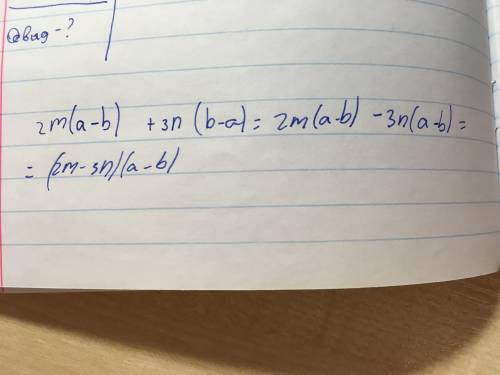 2m(a-b) +3n (b-a) = 2m(a-b) -3n(a-b) =
= (2m-3n)(a-b)